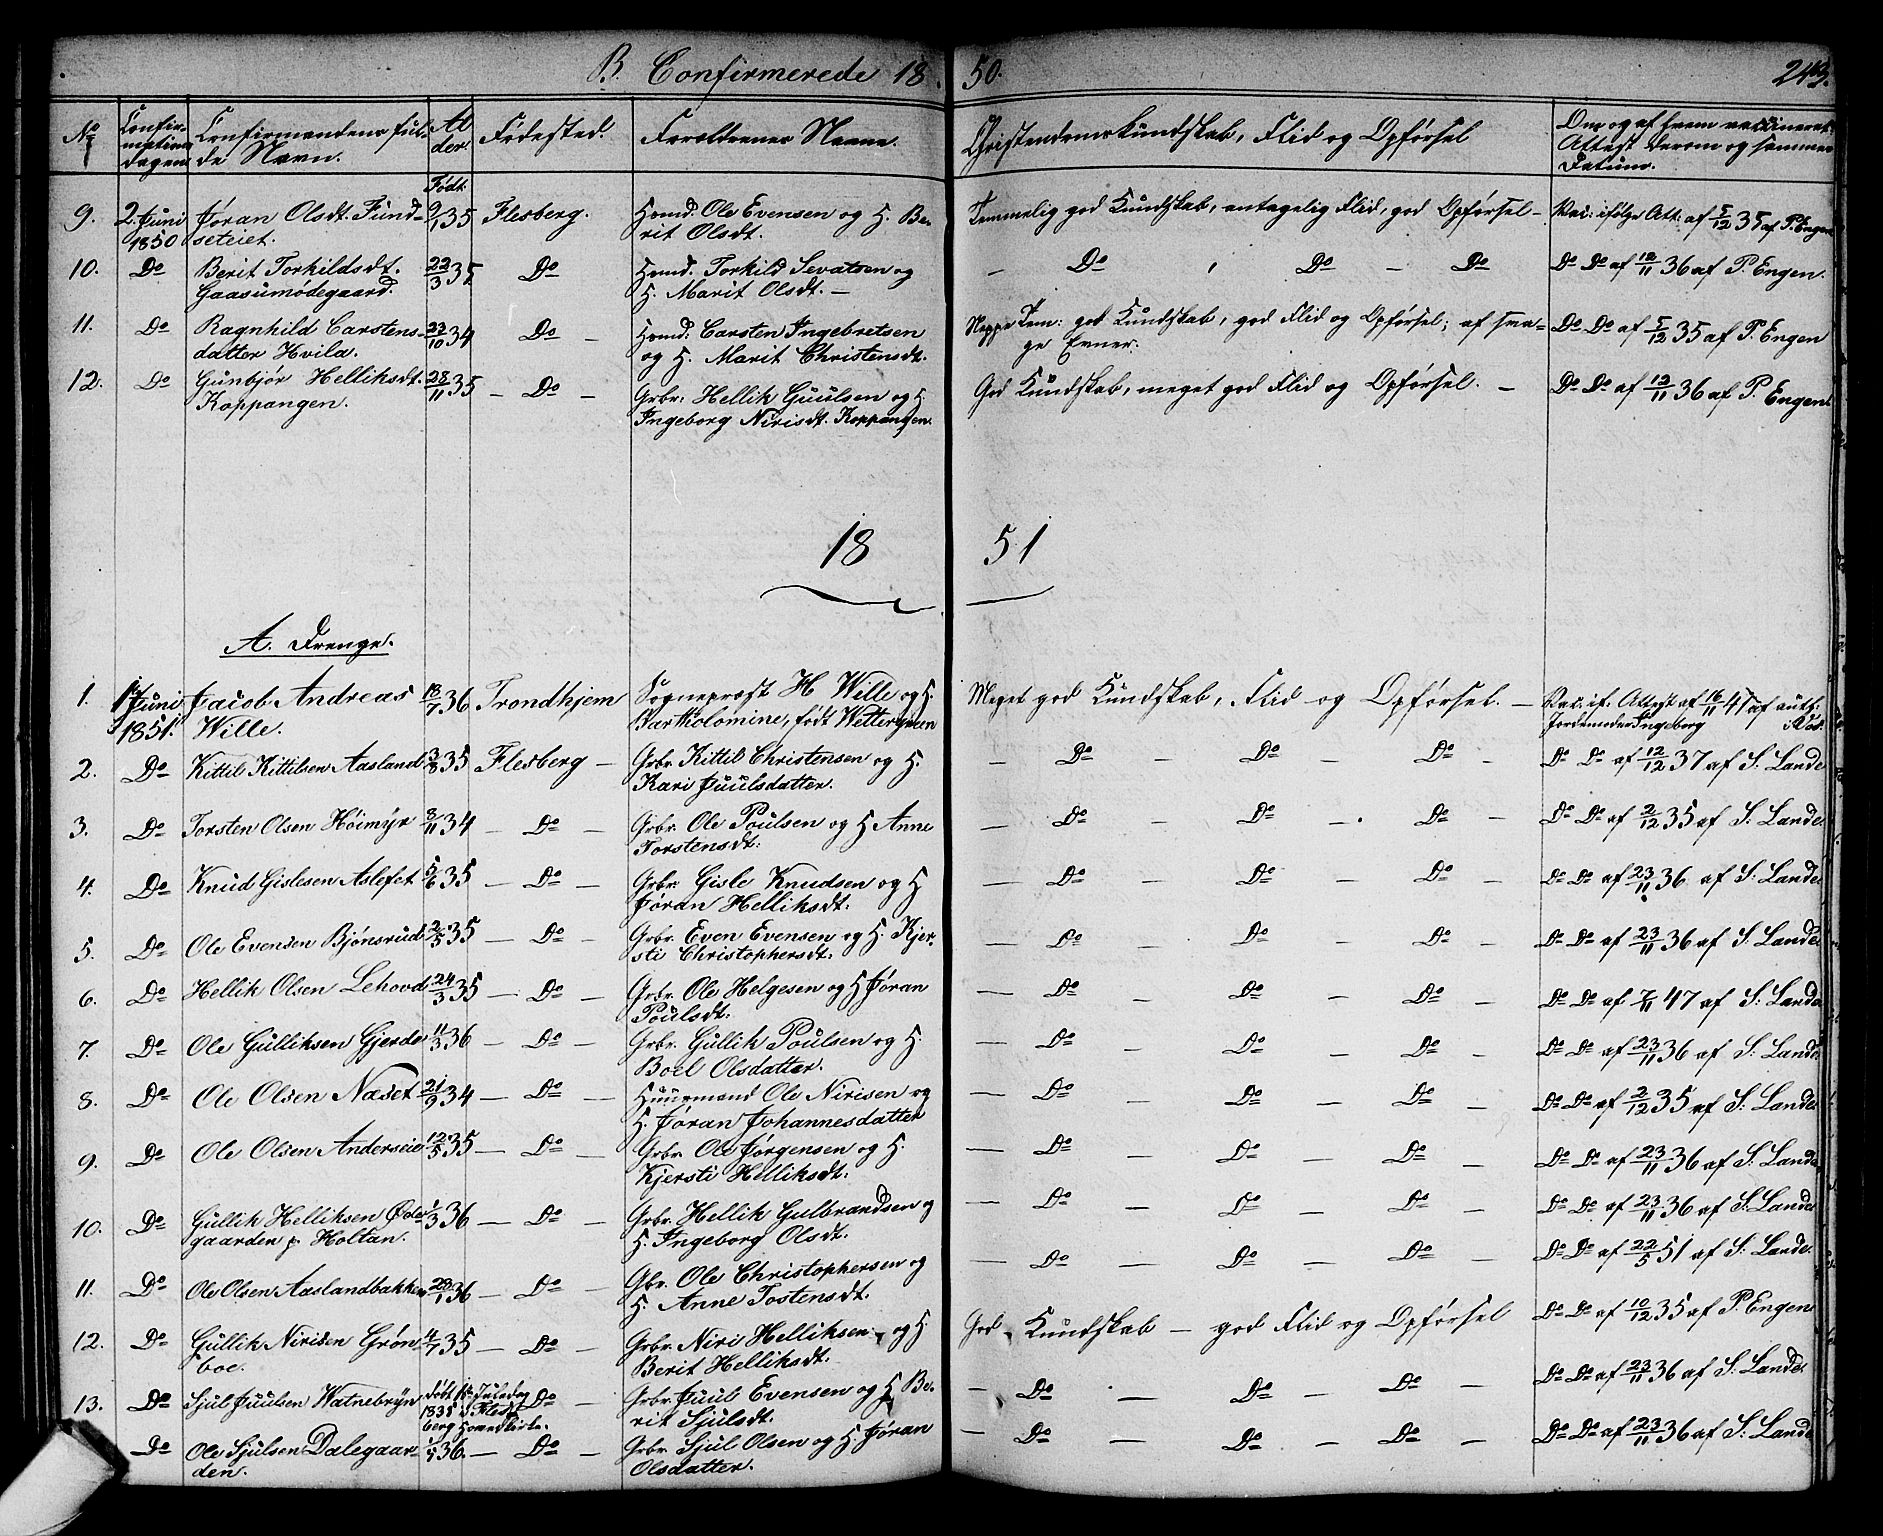 B. Confirmerede 18 50. 243.
No Confirmations dagen Confirmandens fulde Navn. Alder. Fødested. Forældrenes Navne. Christendomskundskab, Flid og Opførsel Om og af hvem vaccineret, Attest derom og sammes Datum.
Født
9. 2 Juni Jøran Olsdt. Fund- 9/1 35 Flesberg. Hsmd. Ole Evensen og H. Be- Temmelig god Kundskab, antagelig Flid, god Opførsel – Vac: ifølge Att: af 5/12 35 af P. Engen
1850 seteiet. rit Olsdt.
10. Do Berit Torkildsdt. 22/3 35 Do Hsmd. Torkild Sevatsen og – Do Do – Do Do Do af 12/11 36 af P. Engen.
Gaasumødegaard. H. Marit Olsdt. –
11. Do Ragnhild Carstens- 22/10 34 Do – Hsmd. Carsten Ingebretsen Neppe Tem: god Kundskab, god Flid og Opførsel; af sva- Do Do af 5/12 35 af P. Engen
datter Hvila. og H. Marit Christensdt. ge Evner.
12. Do Gunbjør Helliksdt. 28/11 35 – Do – Grbr. Hellik Guulsen og H. God Kundskab, meget god Flid og Opførsel. – Do Do af 12/11 36 af P. Engen.
Koppangen. Ingeborg Nirisdt. Koppangen.
18 51
A. Drenge.
1. 1 Juni Jacob Andreas 18/7 36 Trondhjem Sognepræst H Wille og H. Meget god Kundskab, Flid og Opførsel. – Vac. if. Attest af 16/11 47 af auth:
1851. Wille. Bartholomine, født Wettergreen Jordemoder Ingeborg
2. Do Kittil Kittilsen Aasland 3/8 35 Flesberg – Grbr. Kittil Christensen og H. – Do – Do – Do – Do Do af 12/12 37 af S. Lande
Kari Juulsdatter.
3. Do Torsten Olsen Høimyr 3/11 34 – Do – Grbr. Ole Poulsen og H Anne – Do – Do – Do – Do Do af 2/12 35 af S. Lande
Torstensdt:
4. Do Knud Gislesen Aslefet 5/6 35 – Do – Grbr. Gisle Knudsen og H – Do – Do – Do – Do Do af 23/11 36 af S. Lande
Jøran Helliksdt:
5. Do Ole Evensen Bjønsrud 2/5 35 – Do – Grbr. Even Evensen og H. Kjer- – Do – Do – Do – Do Do af 23/11 36 af S. Lande
sti Christophersdt:
6. Do Hellik Olsen Lehovd 24/3 35 – Do – Grbr. Ole Helgesen og H Jøran – Do – Do – Do – Do Do af 7/11 47 af S. Lande
Poulsdt.
7. Do Ole Gulliksen Gjerde 11/3 36 – Do – Grbr. Gullik Poulsen og H. – Do – Do – Do – Do Do af 23/11 36 af S. Lande
Boel Olsdatter.
8. Do Ole Olsen Næset 21/9 34 – Do – Huusmand Ole Nirisen og – Do – Do – Do – Do Do af 2/12 35 af S. Lande
H. Jøran Johannesdatter
9. Do Ole Olsen Anderseie 12/5 35 – Do – Grbr. Ole Jørgensen og H. – Do – Do – Do – Do Do af 23/11 36 af S. Lande
Kjersti Helliksdt:
10. Do Gullik Helliksen Øde- 1/3 36 – Do – Grbr. Hellik Gulbrandsen og – Do – Do – Do Do Do af 23/11 36 af S. Lande
gaarden p Holtan. H. Ingeborg Olsdt:
11. Do Ole Olsen Aaslandbakken 29/1 36 – Do – Gbr. Ole Christophersen og – Do – Do – Do – Do Do af 22/5 51 af S. Lande
H. Anne Tostensdt.
12. Do Gullik Nirisen Grøn- 4/7 35 – Do – Grbr. Niri Helliksen og H. God Kundskab – god Flid og Opførsel Do Do af 10/12 35 af P. Engen
boe. Berit Helliksdt.
13. Do Sjul Juulsen Watnebryn Født 1ste Juledag Do – Grbr. Juul Evensen og H Be- – Do – Do – Do – Do Do af 23/11 36 af S. Lande
1835 i Fles- rit Sjulsdt.
berg Hovedkirke.
Do Ole Sjulsen Dalegaar- 1/4 36. – Do – Grbr. Sjul Olsen og H. Jøran – Do – Do – Do – Do Do af 23/11 36 af S. Lande
den. Olsdatter.